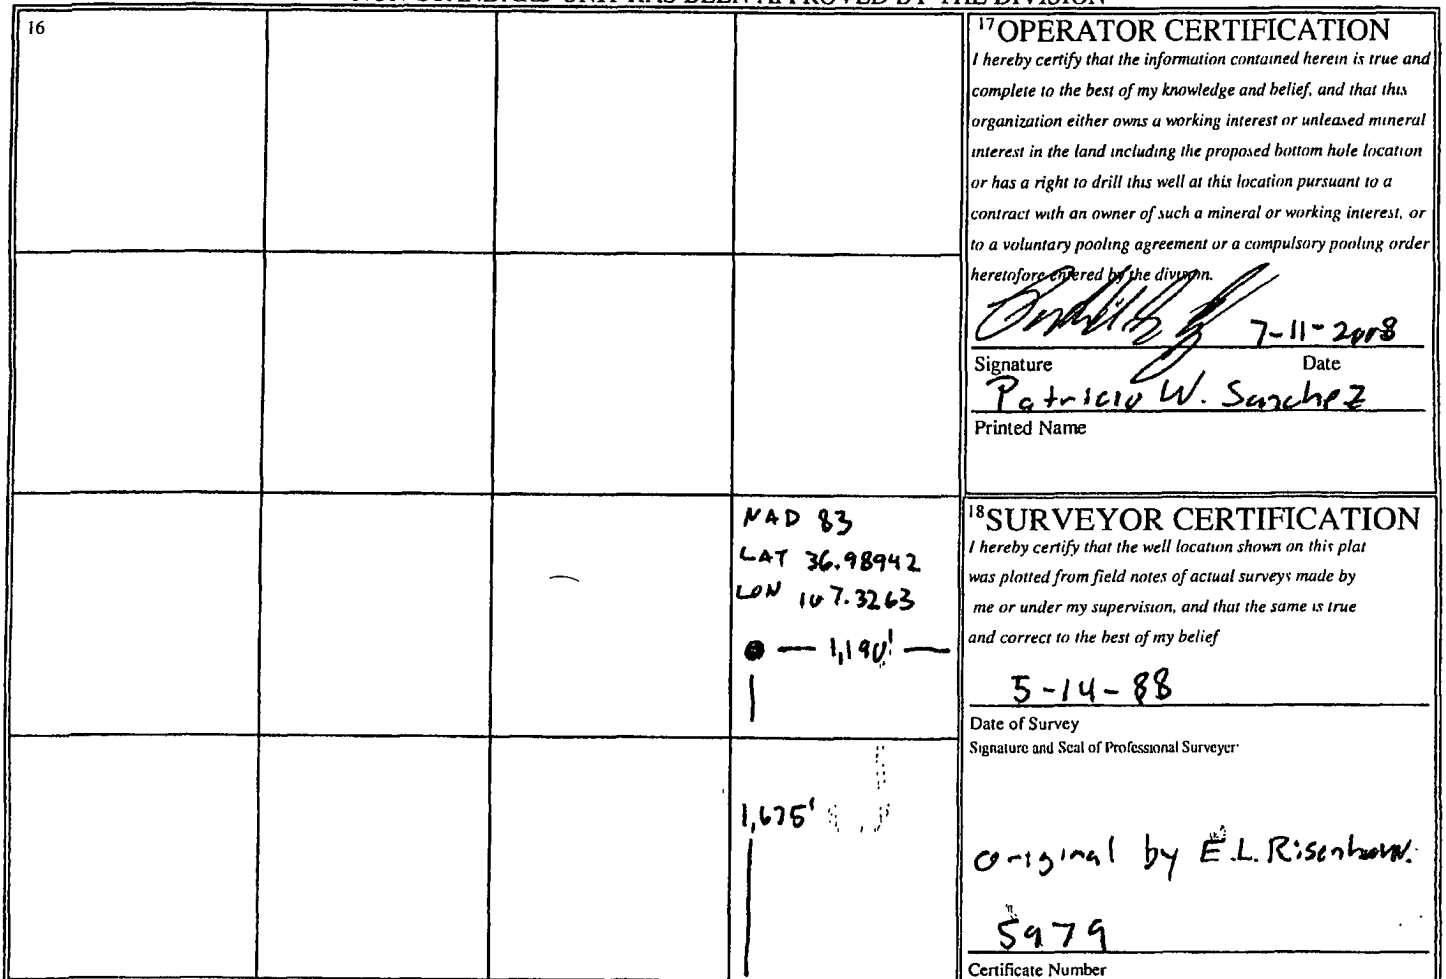 UNIT HAS BEEN APPROVED BY THE DIVISION
16
17 OPERATOR CERTIFICATION
I hereby certify that the information contained herein is true and
complete to the best of my knowledge and belief, and that this
organization either owns a working interest or unleased mineral
interest in the land including the proposed bottom hole location
or has a right to drill this well at this location pursuant to a
contract with an owner of such a mineral or working interest, or
to a voluntary pooling agreement or a compulsory pooling order
heretofore entered by the division.
7-11-2008
Signature Date
Patricio W. Sanchez
Printed Name
NAD 83
LAT 36.98942
LON 107.3263
1,190'
1,675'
18 SURVEYOR CERTIFICATION
I hereby certify that the well location shown on this plat
was plotted from field notes of actual surveys made by
me or under my supervision, and that the same is true
and correct to the best of my belief
5-14-88
Date of Survey
Signature and Seal of Professional Surveyer
original by E.L. Risenhoover
5979
Certificate Number